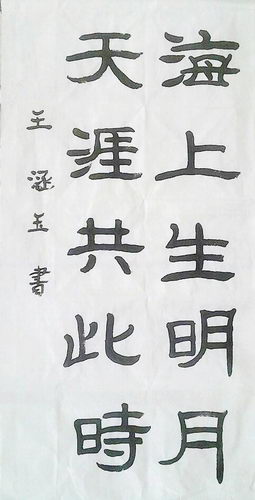 海上生明月
天涯共此時
王涵玉書